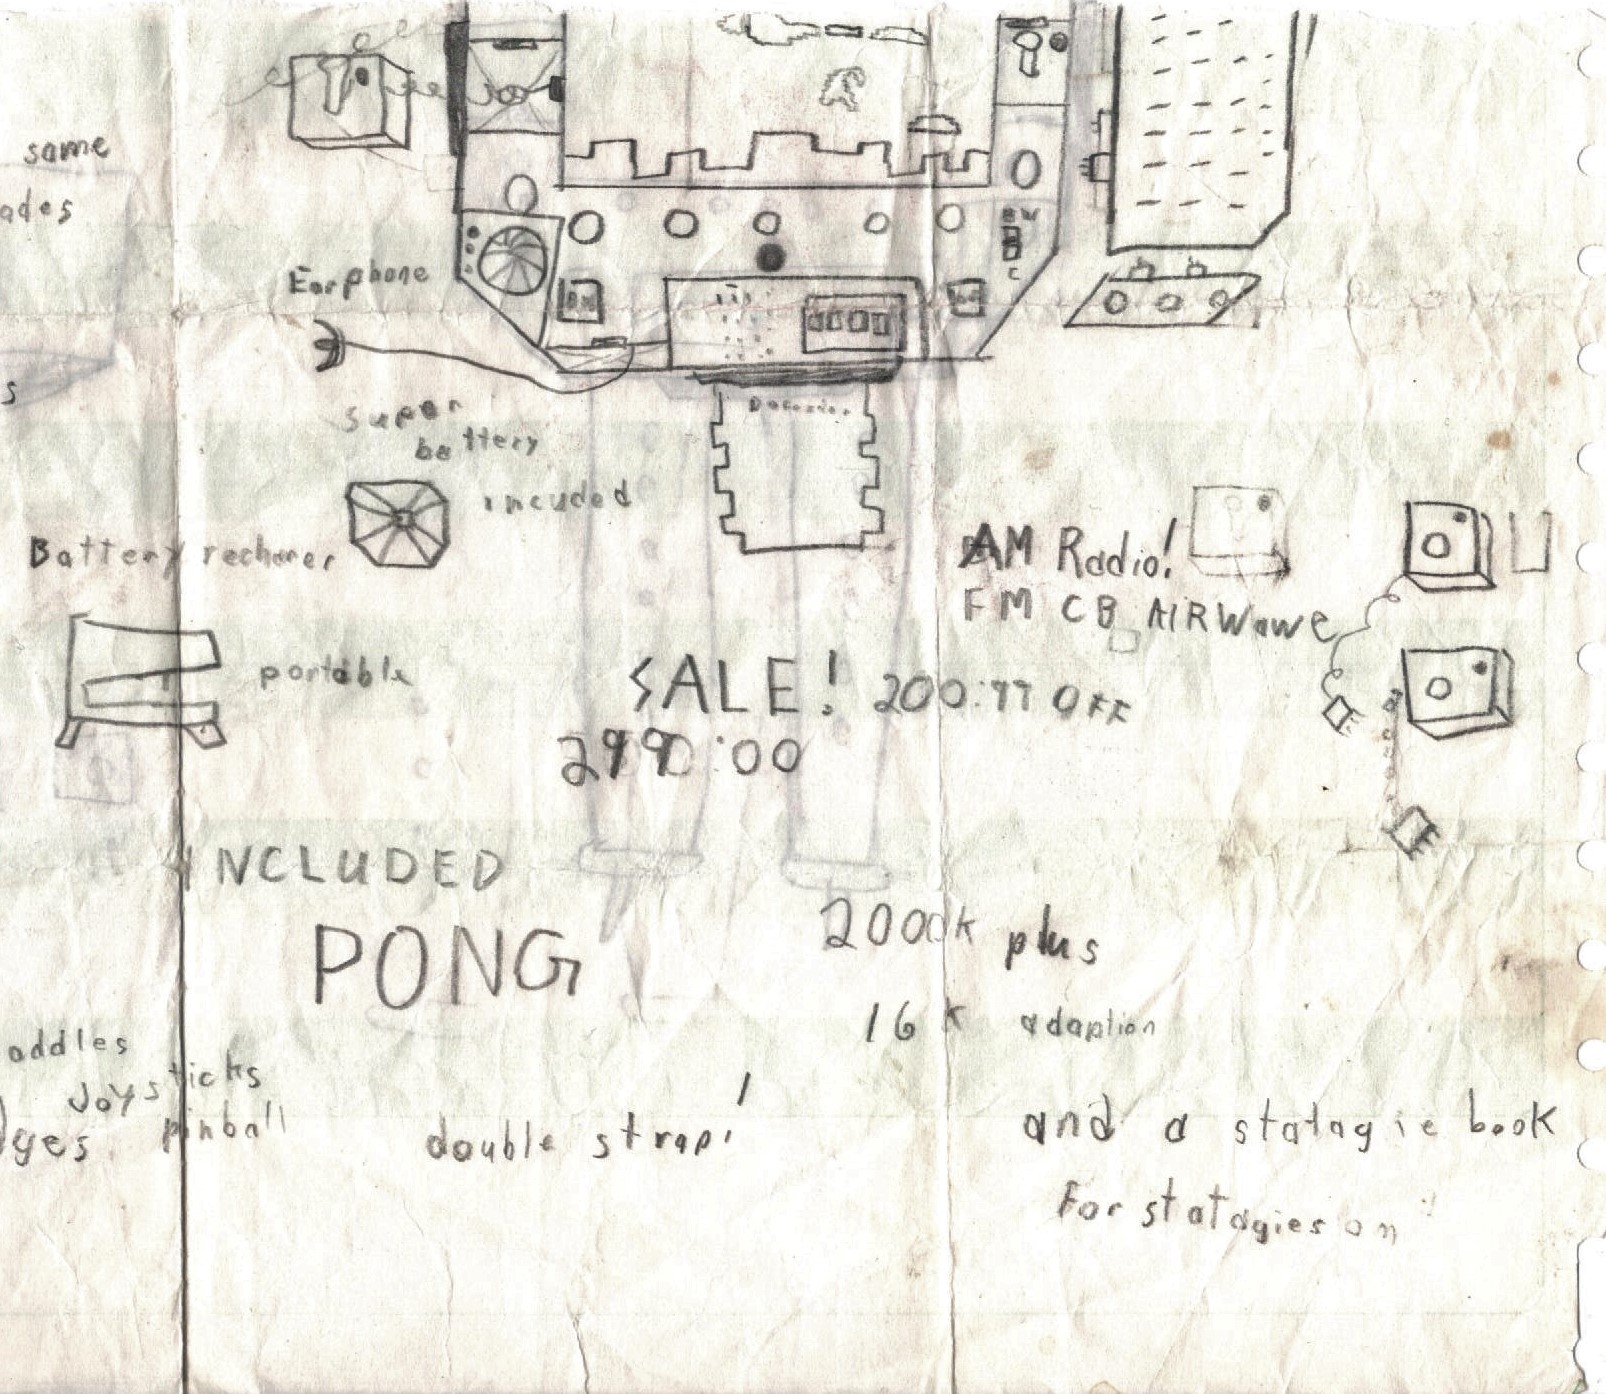 same
ades
BW
C
Earphone
s
Super
battery
incuded
Battery recharer
AM Radio!
FM CB AIRWave
portable
SALE! 200:99 OFF
2990:00
INCLUDED
PONG
2000K plus
16K adaption
addles
Joysticks
ges pinball
double strap!
and a statagie book
For statagies on